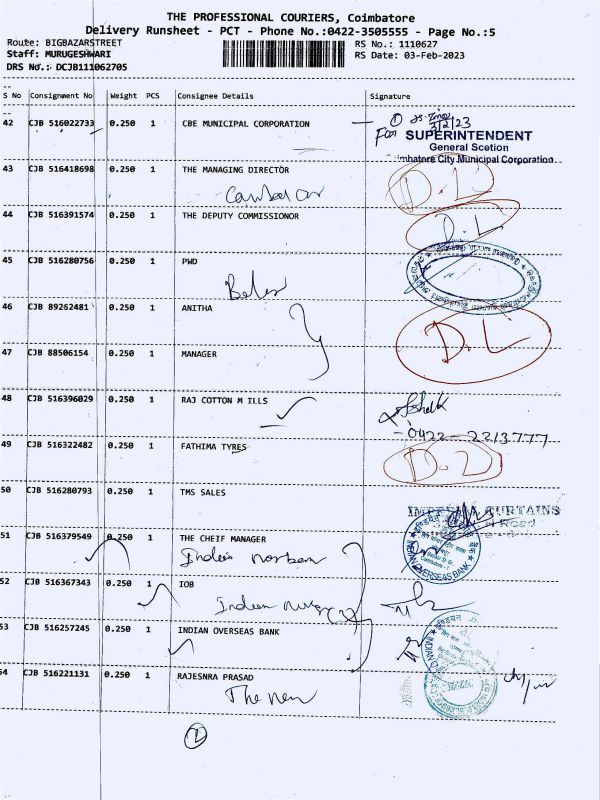 THE PROFESSIONAL COURIERS, Coimbatore
Delivery Runsheet - PCT - Phone No.:0422-3505555 - Page No.:5
Route: BIGBAZARSTREET
RS No.: 1110627
Staff: MURUGESHWARI
RS Date: 03-Feb-2023
DRS No.: DCJB111062705
S No Consignment No Weight PCS Consignee Details Signature
42 CJB 516022733 0.250 1 CBE MUNICIPAL CORPORATION
3/2/23
For SUPERINTENDENT
General Scetion
imbatore City Municipal Corporation
43 CJB 516418698 0.250 1 THE MANAGING DIRECTOR
D.L
44 CJB 516391574 0.250 1 THE DEPUTY COMMISSIONOR
D.L
45 CJB 516280756 0.250 1 PWD
46 CJB 89262481 0.250 1 ANITHA
D.L
47 CJB 88506154 0.250 1 MANAGER
48 CJB 516396029 0.250 1 RAJ COTTON M ILLS
0422-2213777
49 CJB 516322482 0.250 1 FATHIMA TYRES
D.L
50 CJB 516280793 0.250 1 TMS SALES
IMPERIAL CURTAINS
51 CJB 516379549 0.250 1 THE CHEIF MANAGER
INDIAN OVERSEAS BANK
52 CJB 516367343 0.250 1 IOB
Indian
53 CJB 516257245 0.250 1 INDIAN OVERSEAS BANK
54 CJB 516221131 0.250 1 RAJESNRA PRASAD
The new